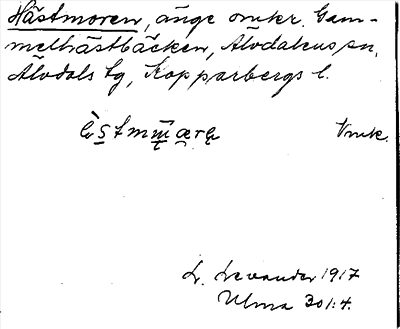 Hästmoren, änge omkr. Gam-
melhästbäcken, Älvdalens sn,
Älvdals tg, Kopparbergs l.
Vmk.
L. Levander 1917
Ulma 301:4.